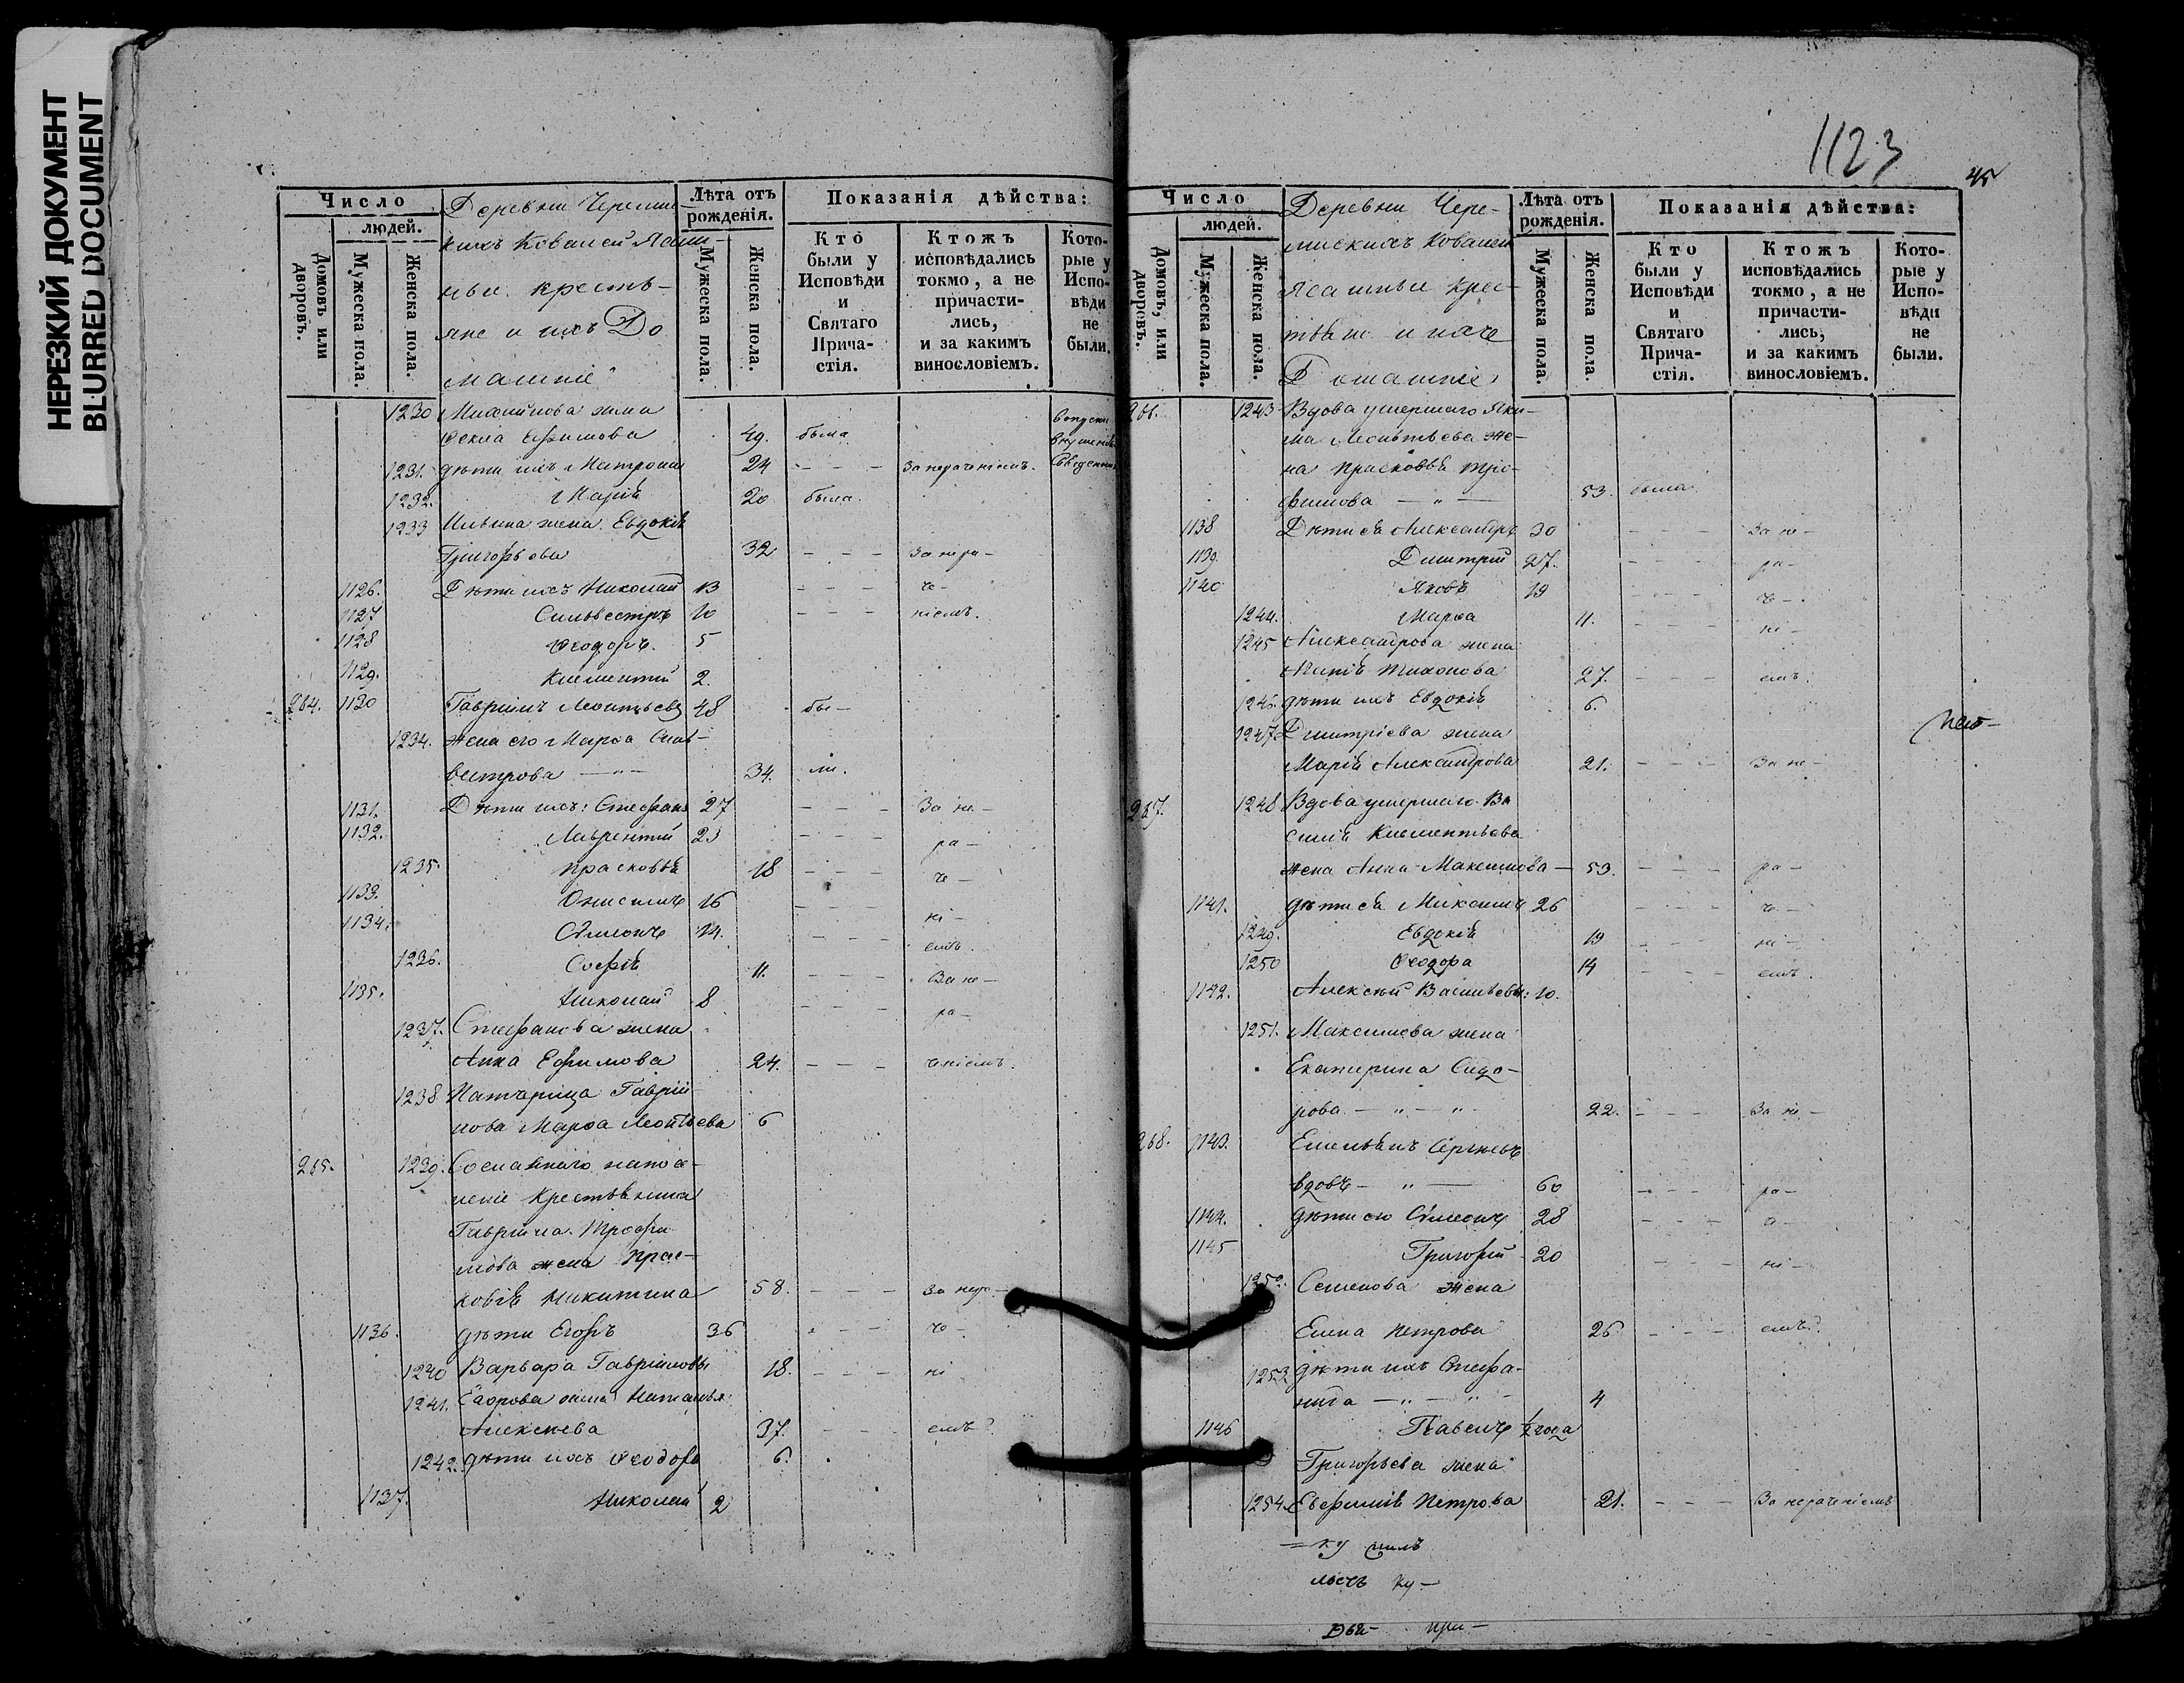 НЕРЕЗКИЙ ДОКУМЕНТ
BLURRED DOCUMENT
Число
людей.
Домовъ или дворовъ.
Мужеска пола.
Женска пола.
Деревни Череми-
яне и ихъ До
машніе
Лѣта отъ рожденія.
Мужеска пола.
Женска пола.
Показанія дѣйства:
Кто были у Исповѣди и Святаго Прича-стія.
Ктожъ исповѣдались токмо, а не причасти-лись, и за какимъ винословіемъ.
Кото-рые у Испо-вѣди не были.
1230 жена
Ефимова 49. была
1231. дѣти ихъ Матрона 24 - - - За нераченіемъ.
1232. Марія 20 была.
1233 Ильина жена Евдокія
Григорьева 32 - - - за нера-
1126. Дѣти ихъ Николай 13 - - - че-
1127 Сильвестръ 10 - - - ніемъ.
1128 Ѳеодоръ. 5
1129. Климентій 2.
264. 1130 Гавріилъ Леонтьевъ 48 бы-
1234. жена его Марѳа Сил-
вестрова - " - 34. ли.
1131. Дѣти ихъ: Стефанъ 27 - - - За не-
1132. Лаврентій 23 - - - ра-
1235. Прасковья 18 - - - че-
1133. Онисимъ 16 - - - ні-
1134. Симеонъ 14. - - - емъ.
1236. Софія 11. - - - За не-
1135. Николай 8 - - - ра-
1237. Стефанова жена
Анна Ефимова 24. - - - ченіемъ.
1238 Гавріи-
лова Марѳа Леонтьева 6
265. 1239. Сосланнаго на посе-
леніе Крестьянина
Гавріила Трофи
мова жена Прас-
ковія Никитина 58. - - - За нера-
1136. дѣти Егоръ 36 - - - че-
1240 Варвара Гавріилова 18. - - - ні
1241. жена Наталья
Алексѣева 37. - - - емъ
1242. дѣти ихъ Ѳеодора 6.
1137. Николай 2
1123
45
Число
людей.
Домовъ, или дворовъ.
Мужеска пола.
Женска пола.
Деревни Чере-
мискихъ
Ясашные Крес-
тьяне и ихъ
Домашніе
Лѣта отъ рожденія.
Мужеска пола.
Женска пола.
Показанія дѣйства:
Кто были у Исповѣди и Святаго Прича-стія.
Ктожъ исповѣдались токмо, а не причасти-лись, и за какимъ винословіемъ.
Кото-рые у Испо-вѣди не были.
266. 1243 Вдова умершаго Яки-
ма Леонтьева же-
на Прасковья Три-
фимова - " - 53. была
1138 Дѣти ея Александръ 30 - - - За не-
1139. Димитрій 27. - - - ра-
1140 Яковъ 19 - - - че-
1244. Марѳа 11. - - - ні-
1245 Александрова жена
Тихонова 27. - - - емъ.
1246. дѣти ихъ Евдокія 6.
1247. Димитріева жена
Марія Александрова 21. - - - За не-
267. 1248 Вдова умершаго Ва
силія Климентьева
жена Анна Максимова - 53. - - - ра-
1141. дѣти ея Максимъ 26 - - - че-
1249. Евдокія 19 - - - ні-
1250 Ѳеодора 14 - - - емъ.
1142. Алексѣй Васильевъ: 10.
1251. Максимова жена
Екатерина Сидо-
рова - " - " - 22. - - - За не-
268. 1143. Емельянъ Сергѣевъ
вдовъ - " - 60 - - - ра-
1144. дѣти его Симеонъ 28 - - - че-
1145 Григорій 20 - - - ні-
1252. Семенова жена
Елена Петрова 26 - - - емъ.
1253 дѣти ихъ Стефа-
нида - " - " 4
1146 Павелъ 1/2 года
Григорьева жена
1254. Евфимія Петрова 21. - - - За нераченіемъ